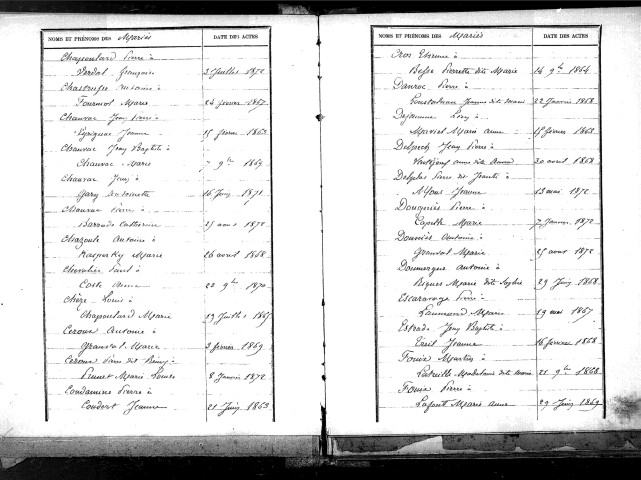 NOMS ET PRÉNOMS DES Mariés DATE DES ACTES
Chapoulard Pierre à
Verdal Françoise 3 Juillet 1872
Chastrusse Antoine à
Fournol Marie 26 février 1867
Chauvac Jean Pierre à
Jeanne 15 février 1863
Chauvac Jean Baptiste à
Chauvac Marie 7 9bre 1869
Chauvac Jean à
Gary Antoinette 16 Juin 1871
Chauvac Pierre à
Barrade Catherine 25 aout 1872
Chazoule Antoine à
Kaspersky Marie 26 avril 1868
Chevalier Paul à
Coste Anna 22 9bre 1870
Chèze Louis à
Chapoulard Marie 19 Juillet 1865
Ceroux Antoine à
Granval Marie 2 février 1869
Ceroux Pierre dit Rémy à
Marie Louise 8 Janvier 1872
Condamine Pierre à
Coudert Jeanne 21 Juin 1863
NOMS ET PRÉNOMS DES Mariés DATE DES ACTES
Cros Etienne à
Besse Pierrette dite Marie 14 9bre 1864
Danroc Pierre à
Jeanne dite 22 Janvier 1868
Dejamme Léon à
Marie anne 15 février 1863
Delpech Jean Pierre à
dite 30 avril 1868
Delplas Pierre dit à
Alfons Jeanne 13 mai 1872
Dougniès Pierre à
Capelle Marie 7 Janvier 1872
Donniès Antoine à
Granval Marie 25 aout 1872
Doumergue Antoine à
Bigues Marie dite Sophie 29 Juin 1868
Escaravage Pierre à
Marie 19 mai 1867
Estrade Jean Baptiste à
Jeanne 16 février 1868
Fouix Martin à
Latreille dite Marie 21 9bre 1868
Fouix Pierre à
Lafont Marie anne 29 Juin 1869